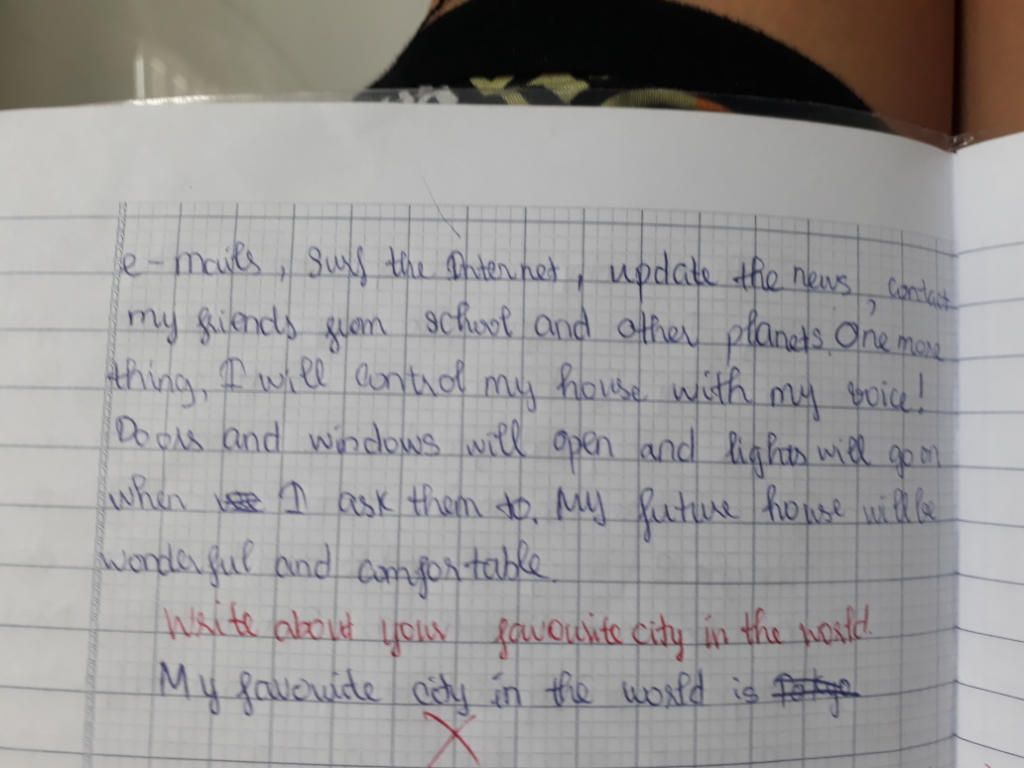 e-mails, surf the Internet, update the news, contact
my friends from school and other planets. One more
thing, I will control my house with my voice!
Doors and windows will open and lights will go on
when I ask them to. My future house will be
wonderful and comfortable.
Write about your favourite city in the world.
My favourite city in the world is